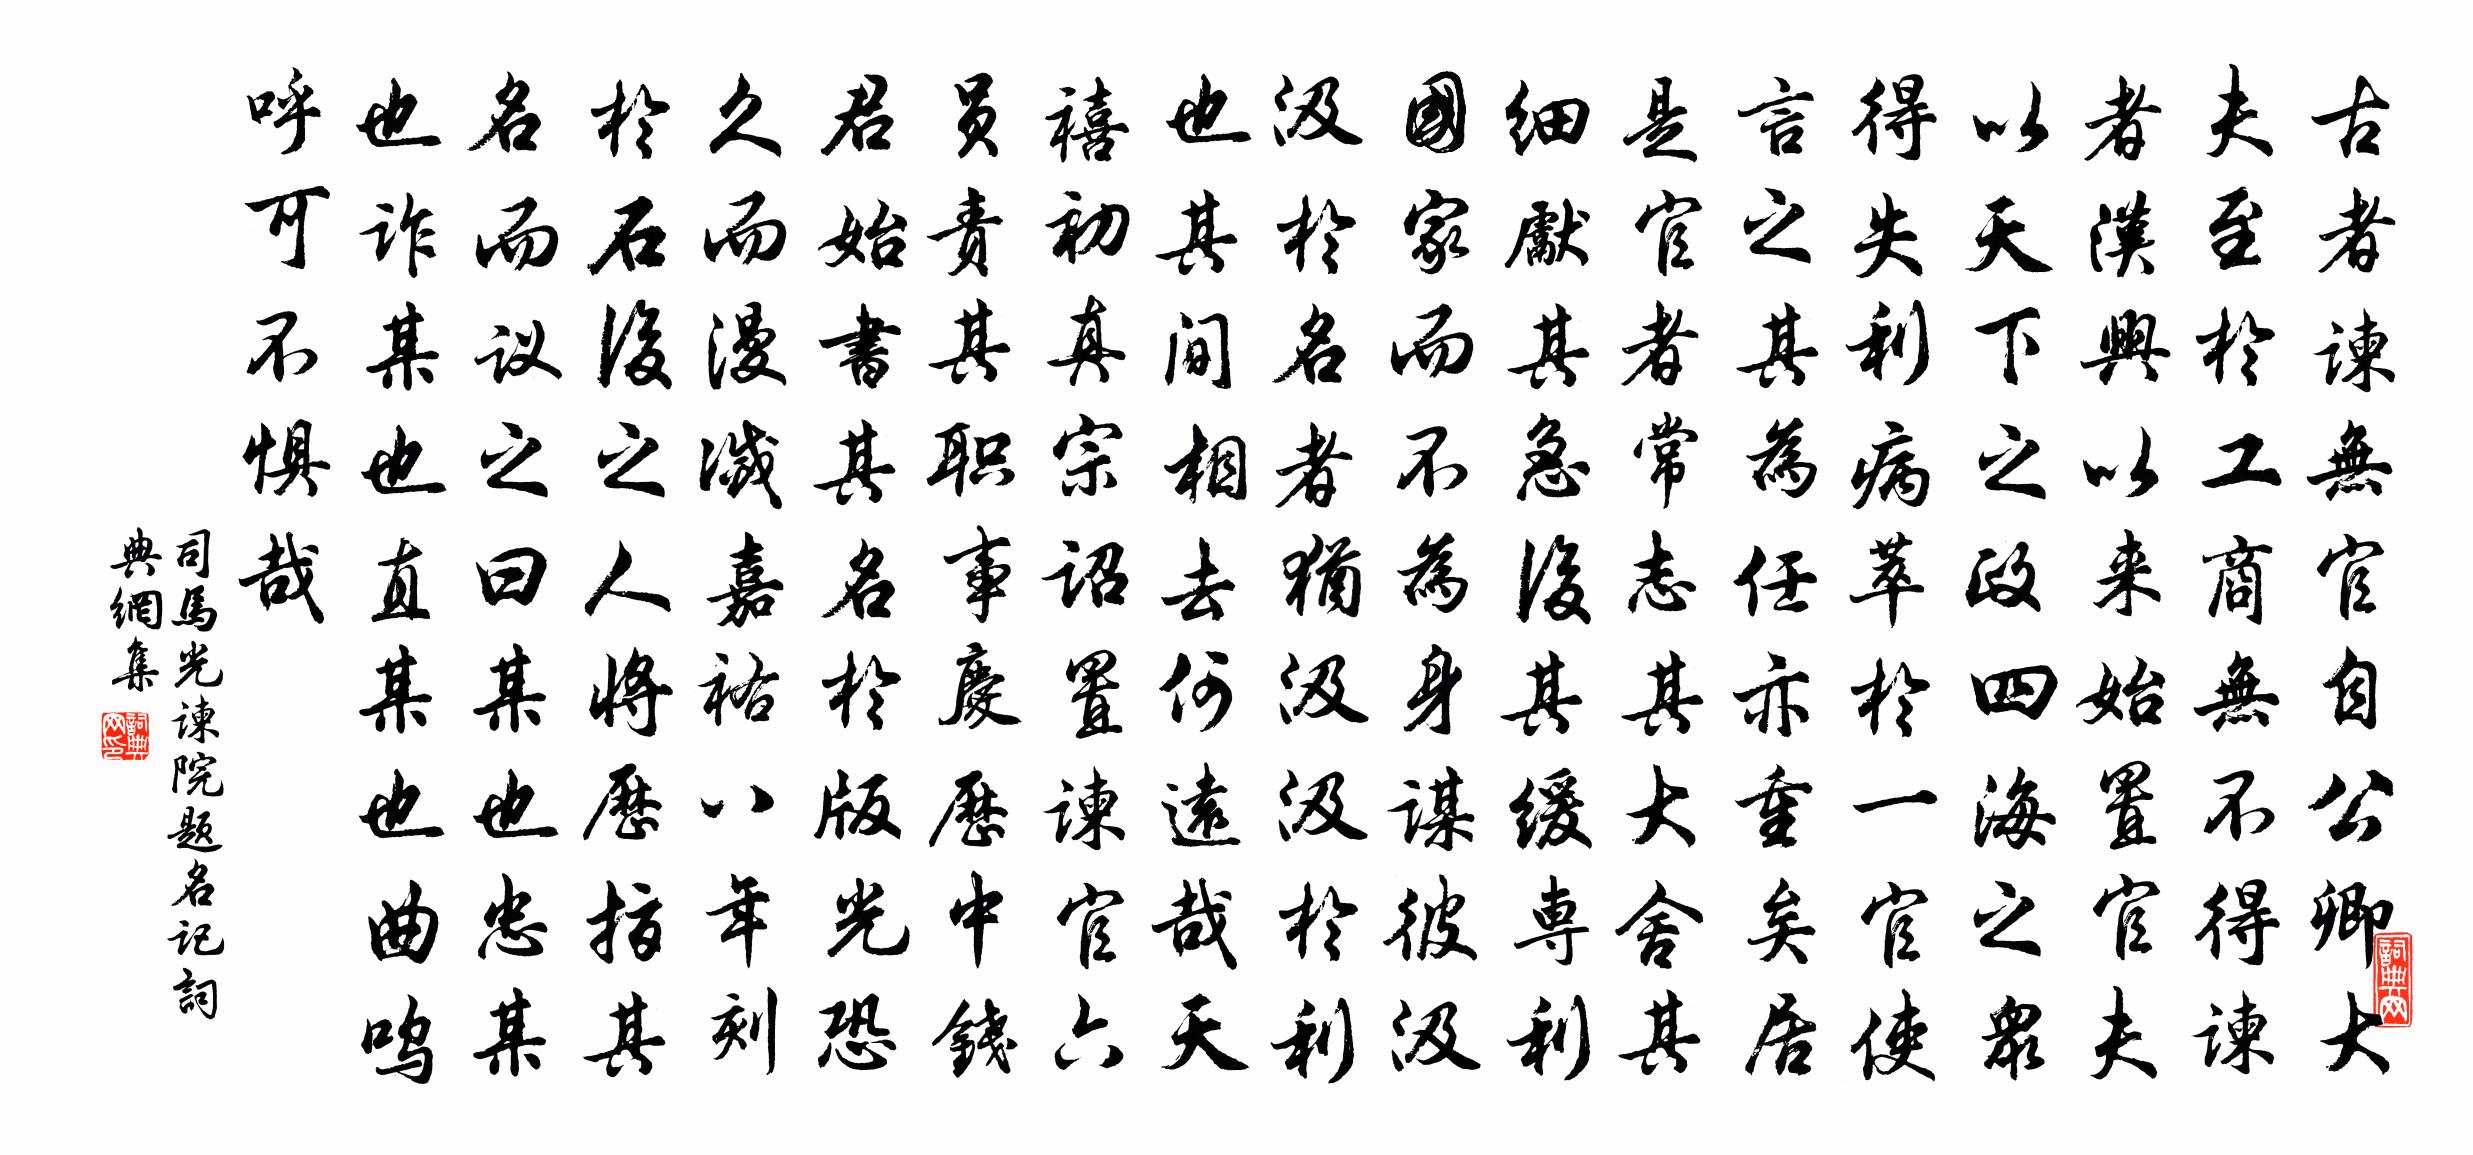 古者谏無官自公卿大
夫至於工商無不得谏
者漢興以来始置官夫
以天下之政四海之眾
得失利病萃於一官使
言之其為任亦重矣居
是官者常志其大舍其
细獻其急後其缓専利
國家而不為身谋彼汲
汲於名者猶汲汲於利
也其间相去何遠哉天
禧初真宗诏置谏官六
员责其职事慶歷中錢
君始書其名於版光恐
久而漫滅嘉祐八年刻
於石後之人将歷指其
名而议之曰某也忠某
也诈某也直某也曲呜
呼可不惧哉
司馬光谏院题名记詞
典網集
詞典网
詞典网印